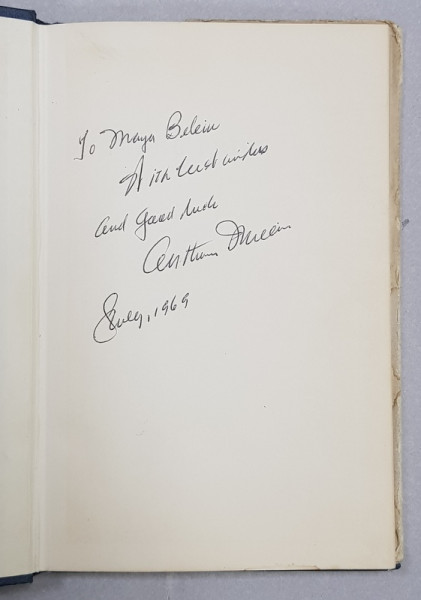 To Maya Belein
With best wishes
and good luck
Arthur Miller
July, 1969